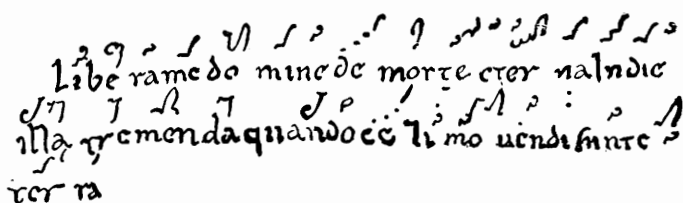 Libe ramedo minede morte eter nalndie
illa tremendaquandocę li mo uendisunte
ter ra